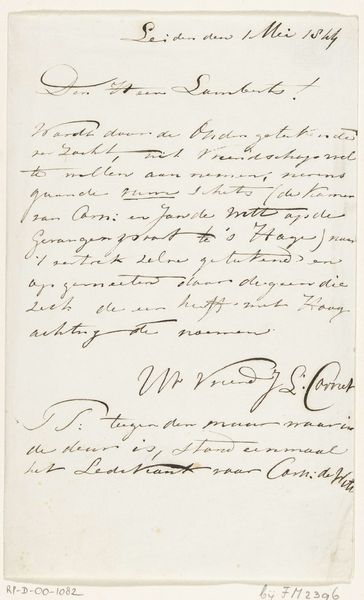 Leiden den 1 Mei 1844
Den Heer Lamberts!
Wordt door de Ondergetekende
verzocht, uit Vriendschap wel
te willen aannemen, nevens
gaande ruwe schets (de Kamer
van Corn: en Jan de Witt op de
Gevangenpoort te 's Hage) naar
't vertrek zelve getekend en
opgemeten door degeen die
zich de eer heeft met Hoog
achting te noemen
UW Vriend J L: Cornet
PS: tegen den muur waar in
de deur is, stond eenmaal
het Ledekant voor Corn: de Witt
RP-D-00-1082
bij FM 2396